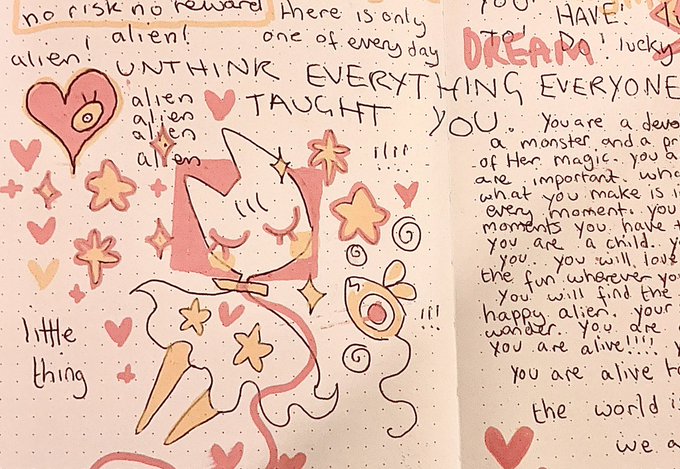 no risk no reward
there is only
one of every day
alien!
alien!
UNTHINK EVERYTHING EVERYONE
TAUGHT YOU.
alien
alien
alien
alien
little
thing
!!!!
!!!
YOU
HAVE!
DREAM!
to! Do! lucky
You are a
a monster and a
of Her magic. you a
are important. wha
what you make is i
every moment. you
moments you have
you are a child. y
you. you will love
the fun wherever yo
You will find the
happy alien. your
wander. you are
you are alive!!!!
you are alive
the world is
we a